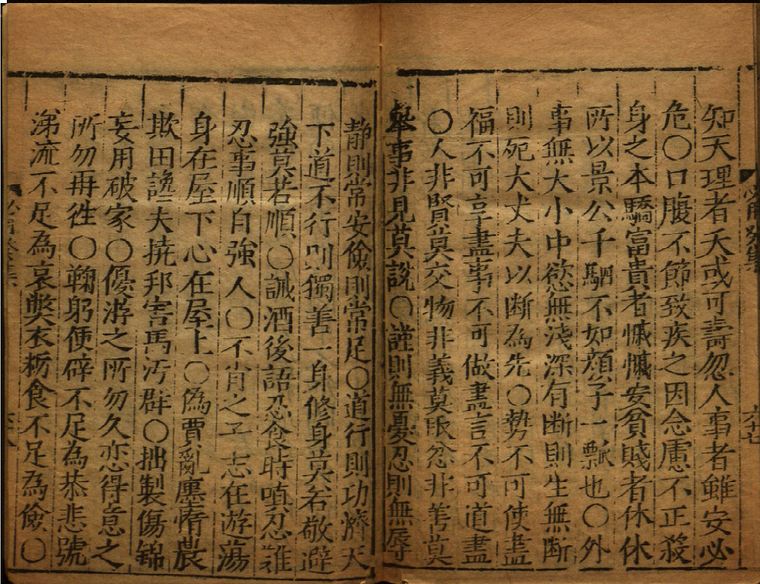 知天理者夭或可壽忽人事者雖安必
危〇口腹不節致疾之因念慮不正殺
身之本驕富貴者慽慽安貧賤者休休
所以景公千駟不如顔子一瓢也〇外
事無大小中慾無淺深有斷則生無斷
則死大丈夫以斷為先〇勢不可使盡
福不可享盡事不可做盡言不可道盡
〇人非賢莫交物非義莫取忿非善莫
舉事非見莫說〇謹則無憂忍則無辱
靜則常安儉則常足〇道行則功濟天
下道不行則獨善一身修身莫若敬避
強莫若順〇誡酒後語忍食時嗔忍難
忍事順自強人〇不肖之子志在游蕩
身在屋下心在屋上〇偽賈亂廛惰農
欺田讒夫撓邦害馬污群〇拙製傷錦
妄用破家〇優游之所勿久恋得意之
所勿再徃〇鞠躬便辟不足為恭悲號
涕流不足為哀獘衣粝食不足為儉〇
六十七